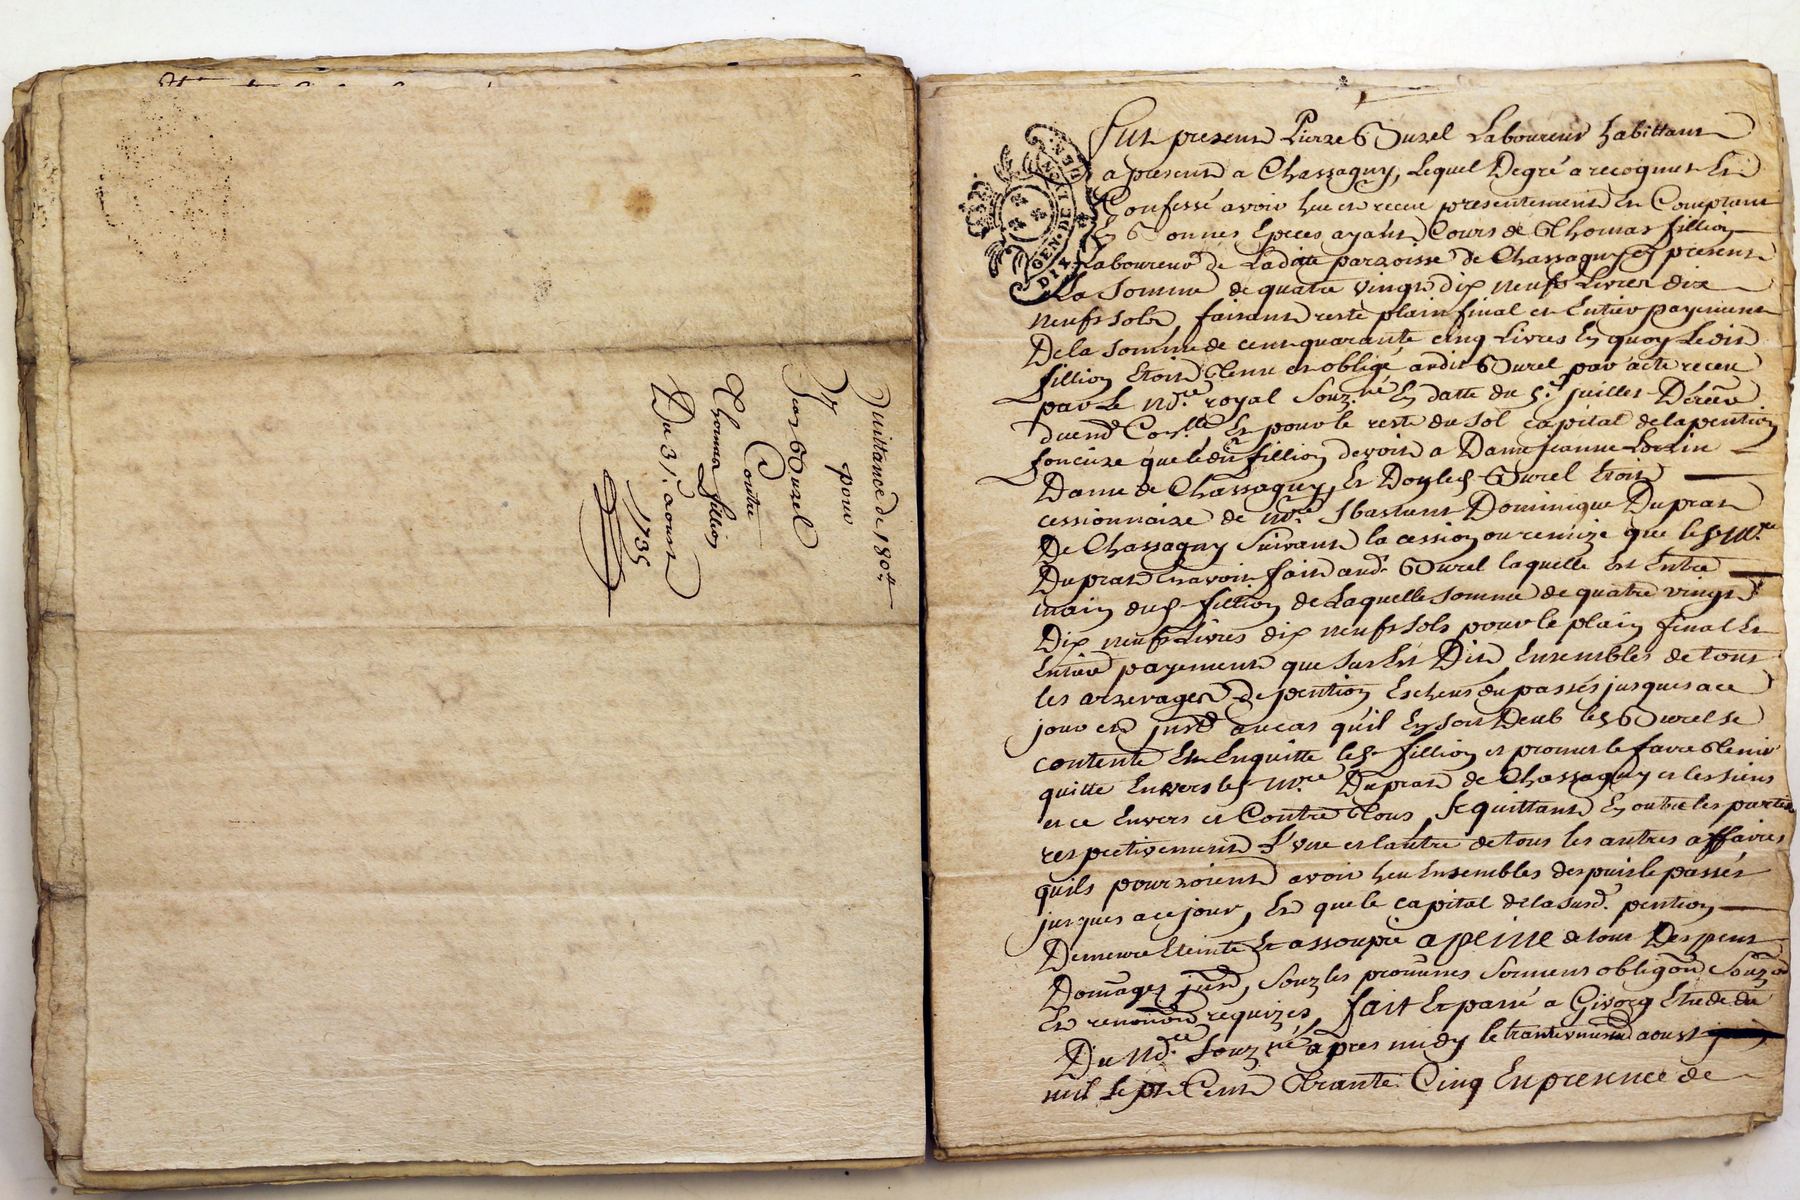 Quittance de 180lt
pour
Sr
Jean Burel
Contre
Thomas fillion
Du 31e aoust
1735
GEN. DE LYON
DIX
Fut present Pierre Burel Laboureur habittant
a present a Chassagny, Lequel Degré a recognut Et
Confessé avoir heu et receu presentement et Comptant
En Bonnes Especes ayant Cours de Thomas fillion
Laboureur de Laditte parroisse de Chassagny cy present
La somme de quatre vingt dix neufs Livres dix
neufs sols, faisant reste plain final et Entier payement
De la somme de cent quarante cinq Livres En quoy Ledit
fillion Etoit tenu et obligé audit Burel par acte receu
par Le nore royal souzné En datte du 5e Juillet Dernier
duemt Corllé Et pour le reste du sol capital de la pention
fonciere que ledit fillion devoit a Dame Jeanne
Dame de Chassagny, Et Donled Burel Etoit
cessionnaire de mre Sbastient Dominique Duprat
De Chassagny Suivant la cession ou remize que led mre
Duprat En avoit fait aud Burel laquelle Est Entre
main dud fillion de Laquelle somme de quatre vingt
Dix neufs Livres dix neufs sols pour le plain final Et
Entier payement que sus Est Dit Ensembles de tous
les arrerages de pention Escheus du passés jusques a ce
jour et au cas qu'il En soit Deub led Burel se
contente Et En quitte led fillion et promet le faire tenir
quitte Envers led mre Duprat de Chassagny et les siens
et ce Envers et Contre tous, se quittant En outre les parties
respectivement L'une et lautre de tous les autres affaires
quils pourroient avoir heu Ensembles despuis le passés
jusques a ce jour, Et que le capital de la susd. pention
Demeure Eteinte Et assoupie a peine de tous Despens
Domages souz les promesses serment obligaon souz on
Et renonon requizes, fait Et passé a Givors Etude du
Du nore souzné apres midy le trante unieme aoust
mil sept Cent trante Cinq En presence de